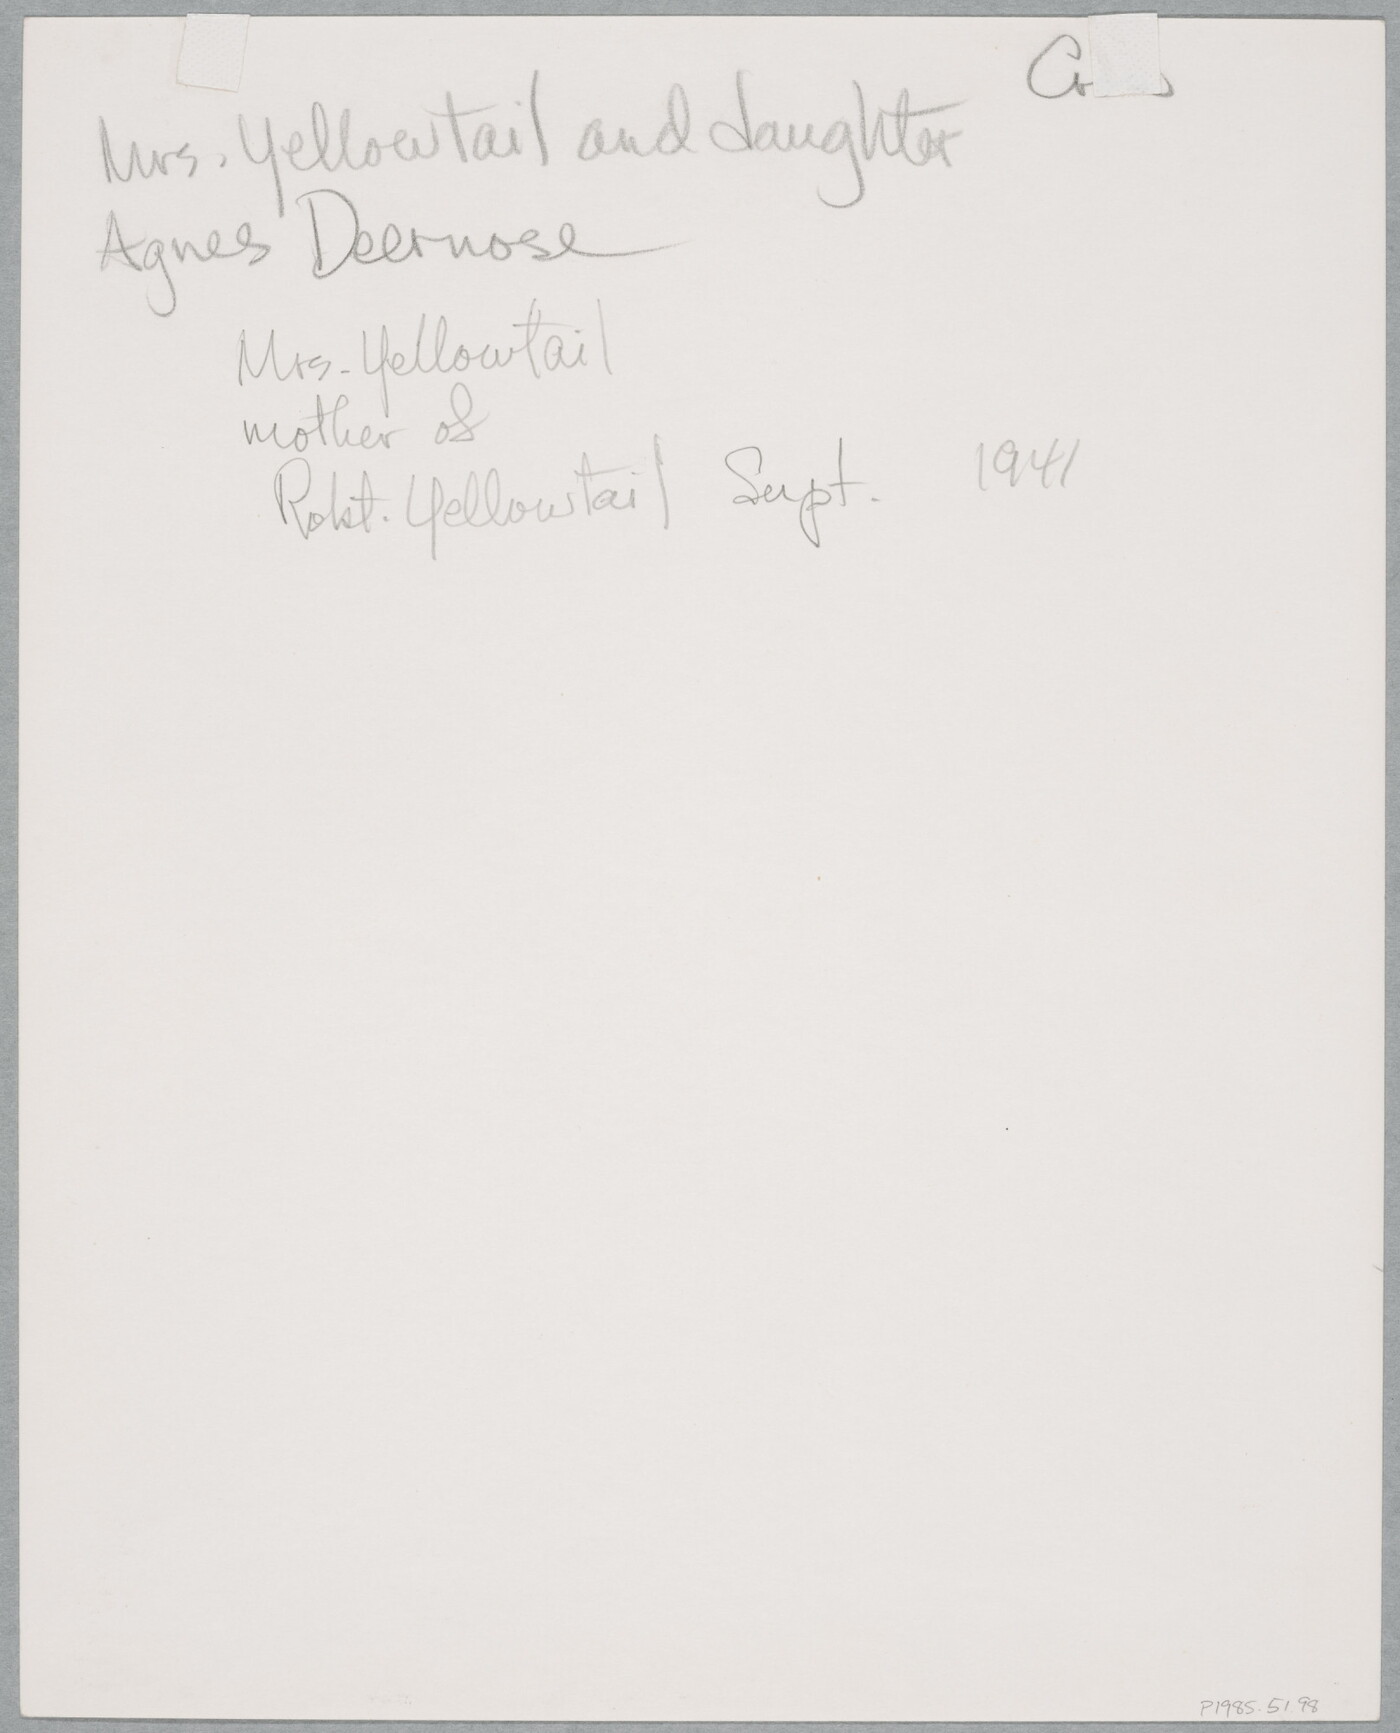 Mrs. Yellowtail and daughter
Agnes Deernose
Mrs. Yellowtail
mother of
Robt. Yellowtail Supt. 1941
P1985.51.98